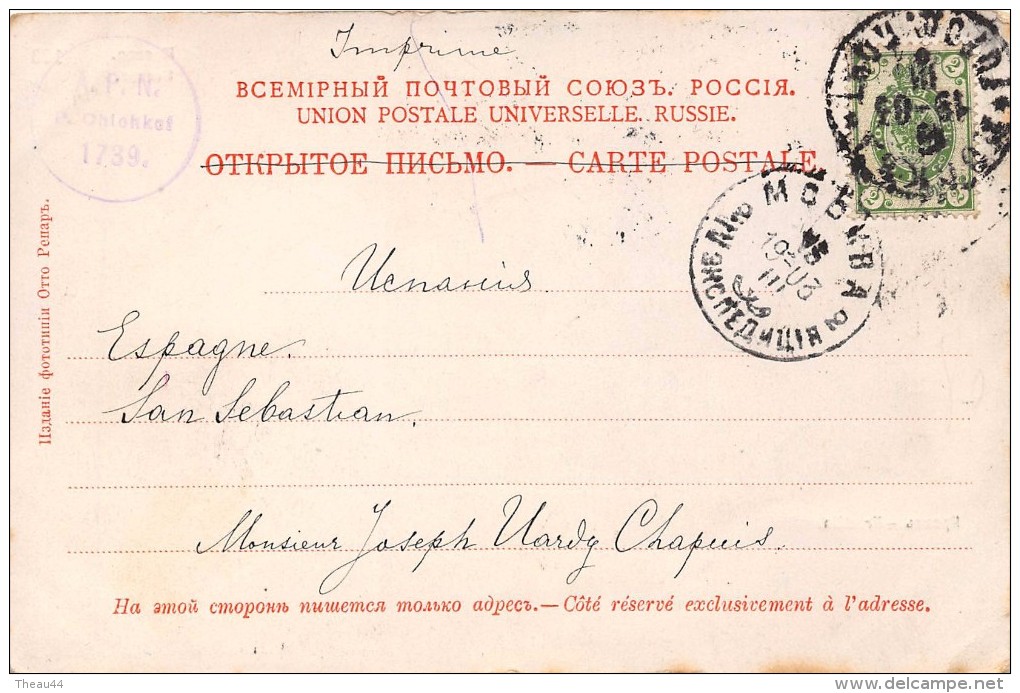 Imprime
ВСЕМІРНЫЙ ПОЧТОВЫЙ СОЮЗЪ. РОССІЯ.
UNION POSTALE UNIVERSELLE. RUSSIE.
ОТКРЫТОЕ ПИСЬМО. — CARTE POSTALE
P. N.
1739.
2 2
2 2
19 03
МОСКВА
19 03
III
2
Изданіе фототипіи Отто Ренаръ.
Испанія
Espagne.
San Sebastian.
Monsieur Joseph Uardy Chapuis.
На этой сторонѣ пишется только адресъ.—Côté réservé exclusivement à l'adresse.
Theau44
delcampe.net